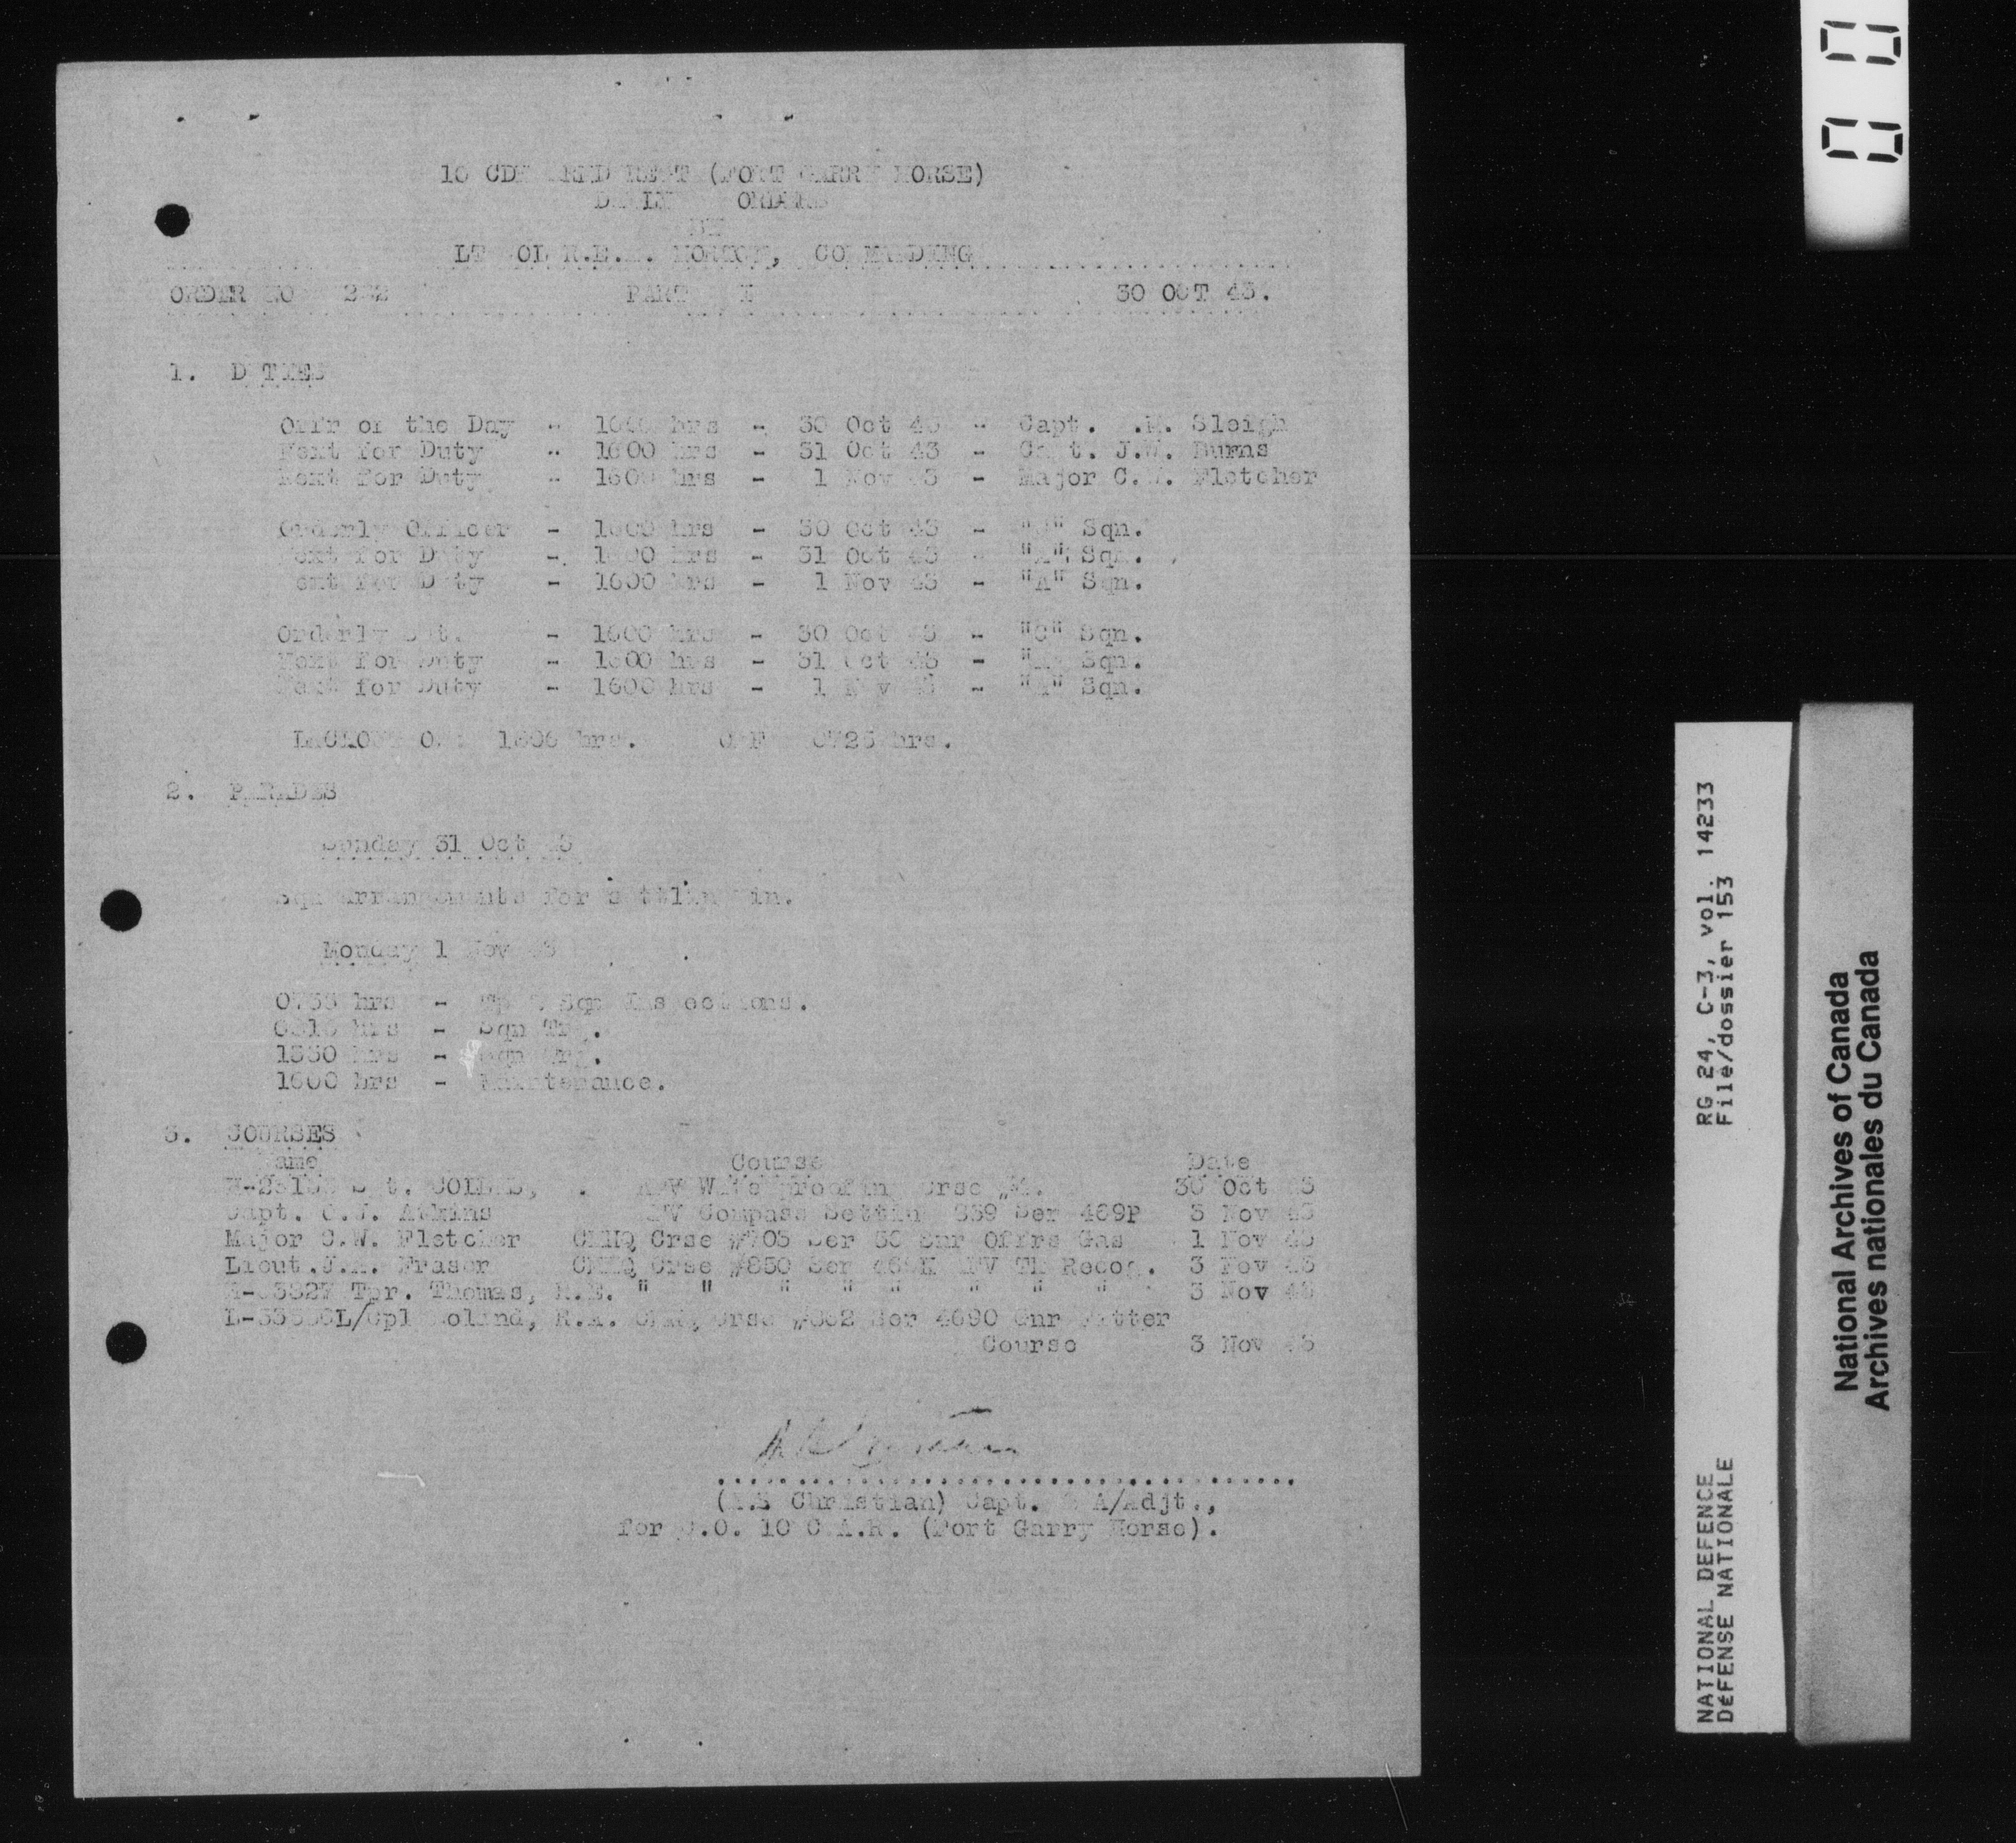 10 CDN ARMD REGT (FORT GARRY HORSE)
DAILY ORDERS
BY
LT COL R.E.A. MORTON, COMMANDING
ORDER NO 232 PART I 30 OCT 43.
1. DUTIES
Offr of the Day - 1600 hrs - 30 Oct 43 - Capt. Sleigh
Next for Duty - 1600 hrs - 31 Oct 43 - Capt. J.W. Burns
Next for Duty - 1600 hrs - 1 Nov 43 - Major C.W. Fletcher
Orderly Officer - 1600 hrs - 30 Oct 43 - Sqn.
Next for Duty - 1600 hrs - 31 Oct 43 - Sqn.
Next for Duty - 1600 hrs - 1 Nov 43 - "A" Sqn.
Orderly Sgt. - 1600 hrs - 30 Oct 43 - "C" Sqn.
Next for Duty - 1600 hrs - 31 Oct 43 - Sqn.
Next for Duty - 1600 hrs - 1 Nov 43 - Sqn.
BLACKOUT ON 1806 hrs. OFF 0725 hrs.
2. PARADES
Sunday 31 Oct 43
Sqn arrangements for settling in.
Monday 1 Nov 43
hrs - Tp & Sqn Inspections.
hrs - Sqn Trg.
1330 hrs - Sqn Trg.
1600 hrs - Maintenance.
3. COURSES
Name Course Date
Sgt. AFV Waterproofing Crse 30 Oct 43
Capt. C.J. Atkins AFV Compass Setting 839 Ser 469P 3 Nov 43
Major C.W. Fletcher CMHQ Crse #703 Ser 50 Snr Offrs Gas 1 Nov 43
Lieut. Fraser CMHQ Crse #850 Ser AFV Recog. 3 Nov 43
Tpr. Thomas, R.E. " " " " " " " " 3 Nov 43
L/Cpl CMHQ Crse Ser 4690 Gnr Fitter
Course 3 Nov 43
(A.E Christian) Capt. & A/Adjt.,
for O.C. 10 C.A.R. (Fort Garry Horse).
RG 24, C-3, vol. 14233
File/dossier 153
NATIONAL DEFENCE
DéFENSE NATIONALE
National Archives of Canada
Archives nationales du Canada